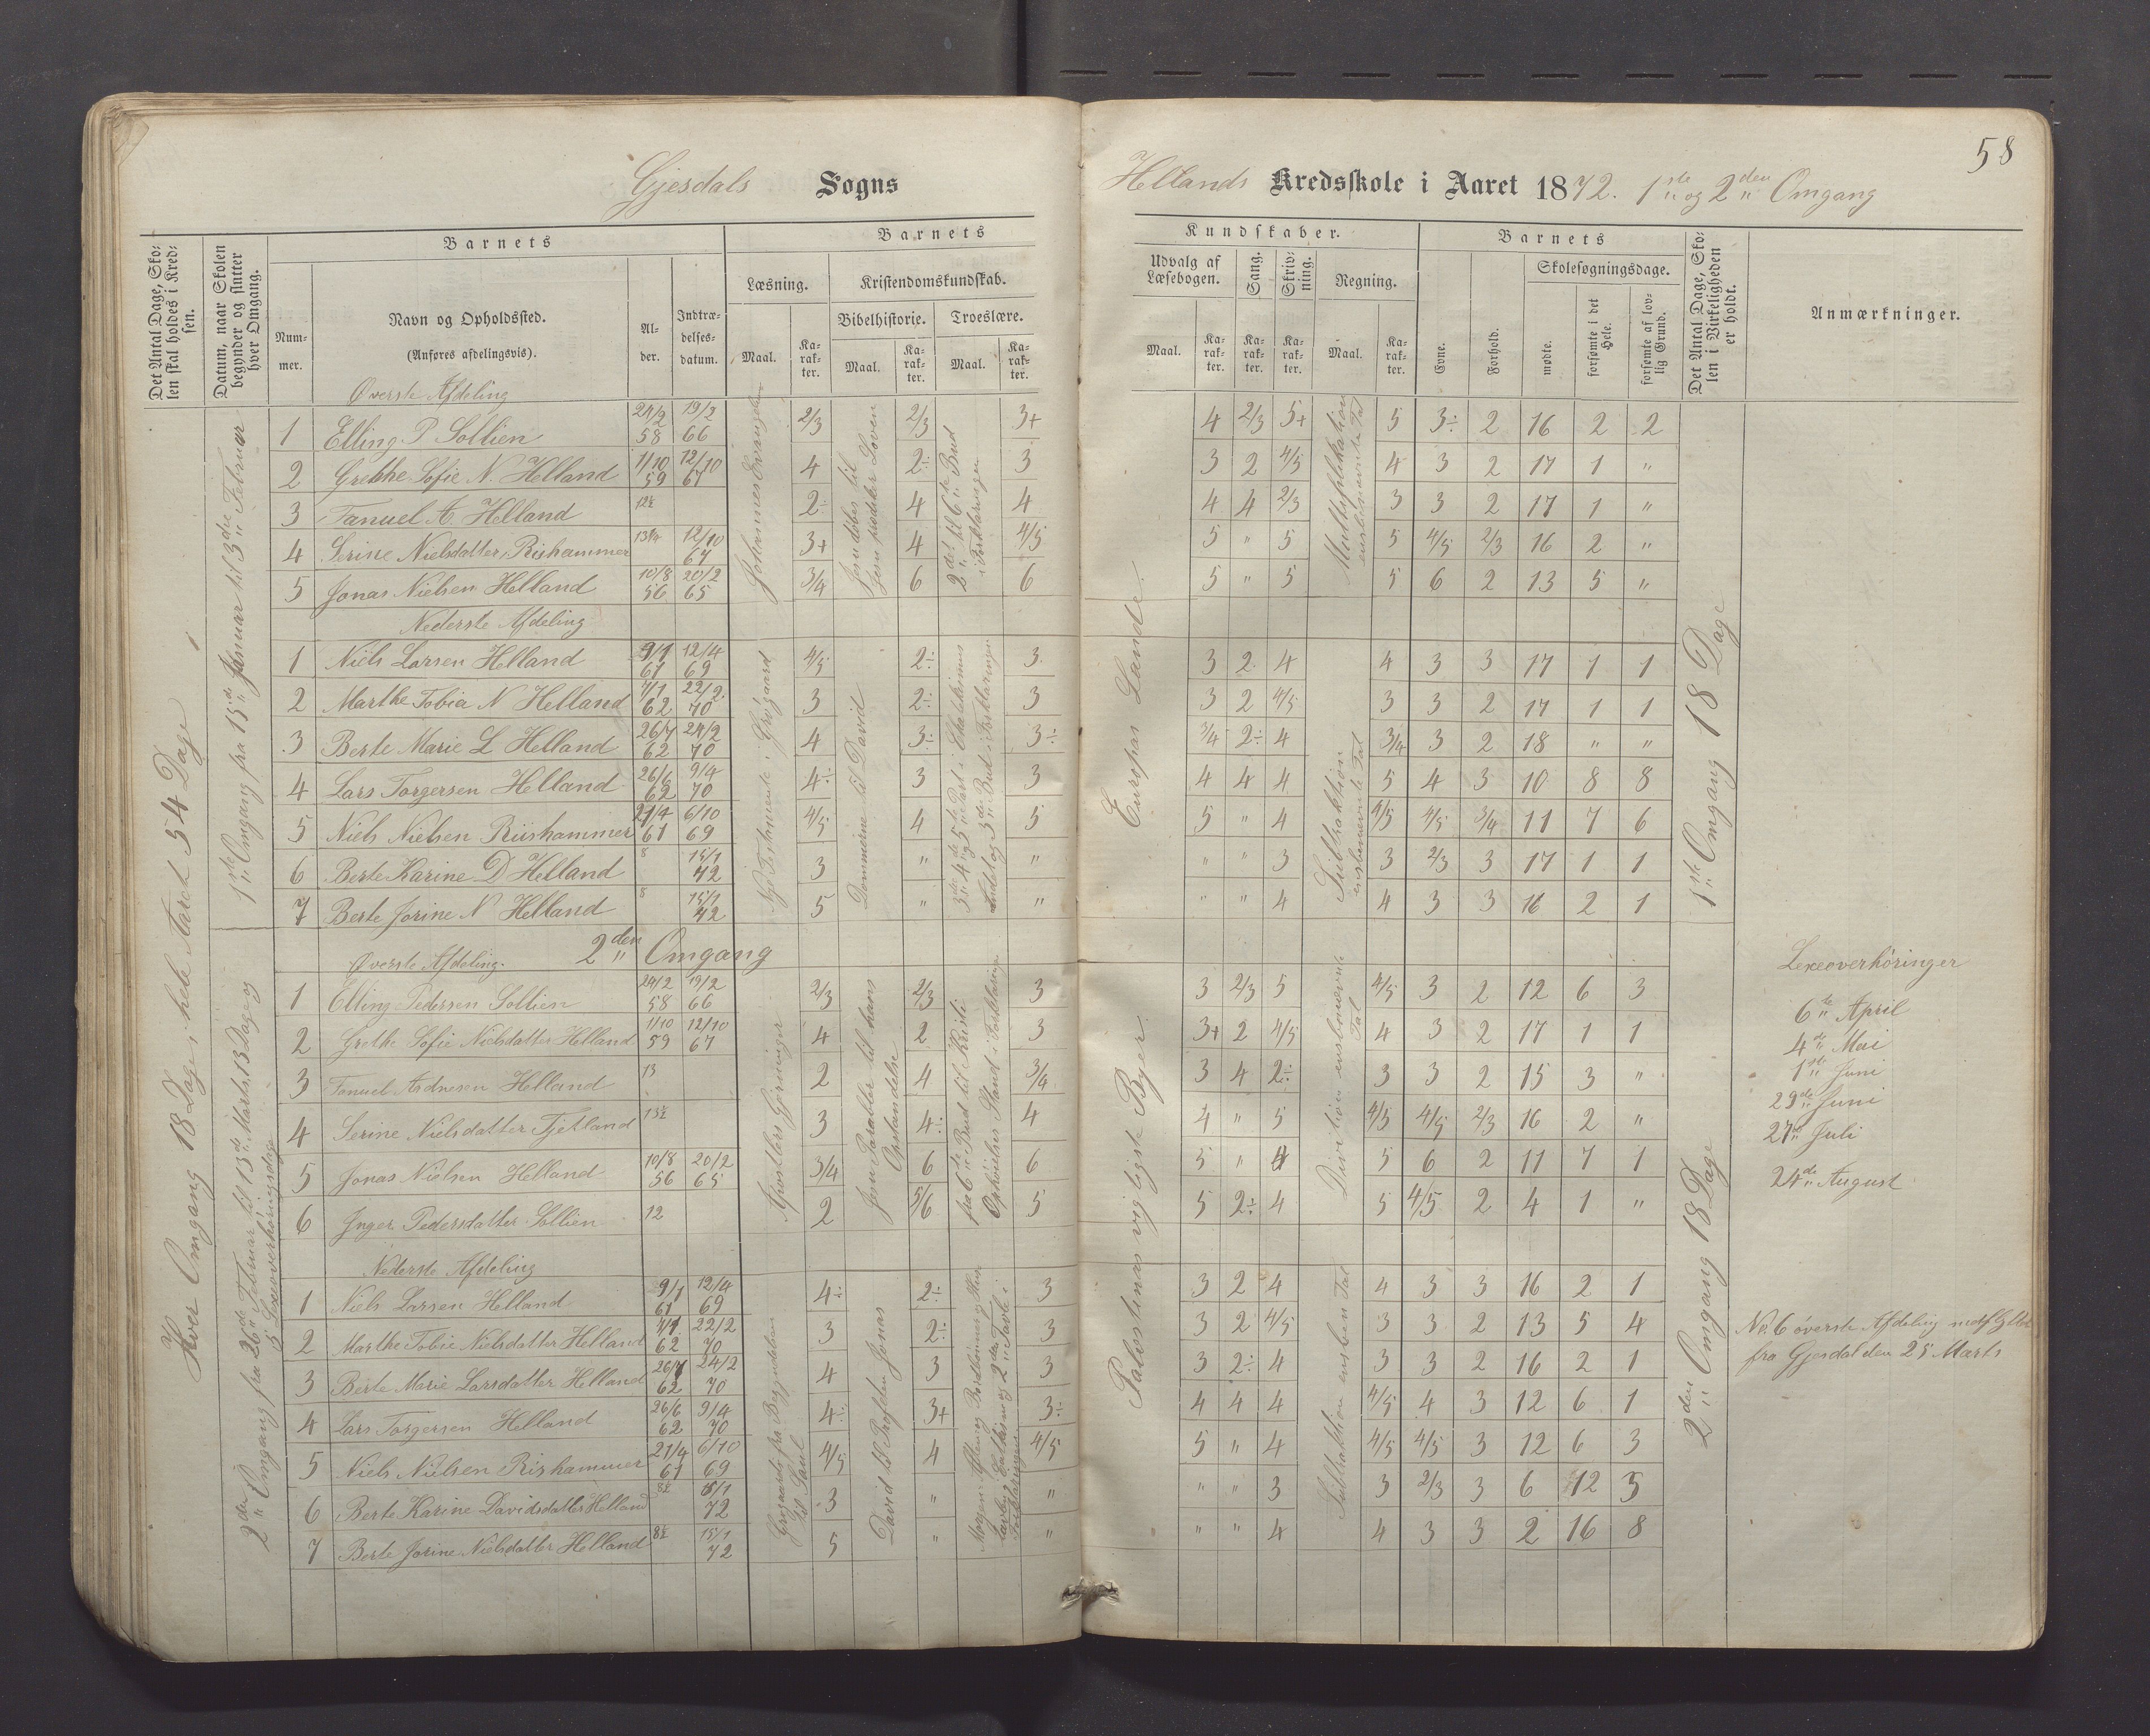 58
Gjesdals Sogns
Hellands Kredsskole i Aaret 1872. 1ste og 2den Omgang
Det Antal Dage, Skolen skal holdes i Kredsen.
Datum, naar Skolen begynder og slutter hver Omgang.
Barnets
Nummer.
Navn og Opholdssted.
(Anføres afdelingsvis).
Alder.
Indtrædelsesdatum.
Barnets
Læsning.
Maal.
Karakter.
Kristendomskundskab.
Bibelhistorie.
Maal.
Karakter.
Troeslære.
Maal.
Karakter.
Kundskaber.
Udvalg af Læsebogen.
Maal.
Karakter.
Sang.
Karakter.
Skrivning.
Karakter.
Regning.
Maal.
Karakter.
Barnets
Evne.
Forhold.
Skolesøgningsdage.
mødte.
forsømte i det Hele.
forsømte af lovlig Grund.
Det Antal Dage, Skolen i Virkeligheden er holdt.
Anmærkninger.
Hver Omgang 18 Dage, hele Aaret 54 Dage
1ste Omgang fra 15de Januar til 3die Februar
Øverste Afdeling
Johannes Evangelium
Jesu døbes til Jesu prædiker Loven
2det til 6te Bud i Forklaringen
Europas Lande.
Multiplikation ensbenævnte Tal
1ste Omgang 18 Dage
1 Elling P Sollien 24/2 58 19/2 66 2/3 2/3 3+ 4 2/3 5+ 5 3÷ 2 16 2 2
2 Grethe Sofie N. Helland 1/10 59 12/10 67 4 2÷ 3 3 2 4/5 4 3 2 17 1 "
3 Tanuel A. Helland 12½ 2÷ 4 4 4 4 2/3 3 3 2 17 1 "
4 Serine Nielsdatter Rishammer 13¼ 12/10 67 3+ 4 4/5 5 " 5 5 4/5 2/3 16 2 "
5 Jonas Nielsen Helland 10/8 56 20/2 65 3/4 6 6 5 " 5 5 6 2 13 5 "
Nederste Afdeling
Nye Testamente i Grøgaard
Dommerne til David
Subtraktion ensbenævnte Tal
1 Niels Larsen Helland 9/1 61 12/4 69 4/5 2÷ 3 3 2 4 4 3 3 17 1 1
2 Marthe Tobia N Helland 7/1 62 22/2 70 3 2÷ 3 3 2 4/5 3 3 2 17 1 1
3 Berte Marie L Helland 26/7 62 24/2 70 4 3÷ 3÷ 3/4 2÷ 4 3/4 3 2 18 " "
4 Lars Torgersen Helland 26/6 62 9/4 70 4÷ 3 3 4 4 4 5 4 3 10 8 8
5 Niels Nielsen Riishammer 21/4 61 6/10 69 4/5 4 5 5 " 4 4/5 4/5 3/4 11 7 6
6 Berte Karine D Helland 8 15/1 72 3 " " " " 3 3 2/3 3 17 1 1
7 Berte Jorine N Helland 8 15/1 72 5 " " " " 4 4 3 3 16 2 1
2den Omgang
Øverste Afdeling.
2den Omgang fra 26de Februar til 13de Marts, 13 Dag og 5 Lexeoverhøringsdage
Apostlers Gjerninger
Jesu Parabler til hans Opstandelse
fra 6te Bud til Kristi Ophøielses Stand i Forklaringen
Palæstinas vigtigste Byer.
Division ensbenævnte Tal
2den Omgang 18 Dage
1 Elling Pedersen Sollien 24/2 58 19/2 66 2/3 2/3 3 3 2/3 5 4/5 3 2 12 6 3
2 Grethe Sofie Nielsdatter Helland 1/10 59 12/10 67 4 2 3 3+ 2 4/5 4 3 2 17 1 1
3 Tanuel Andresen Helland 13 2 4 3/4 3 4 2÷ 3 3 2 15 3 "
4 Serine Nielsdatter Tjetland 13½ 3 4÷ 4 4 " 5 4/5 4/5 2/3 16 2 "
5 Jonas Nielsen Helland 10/8 56 20/2 65 3/4 6 6 5 " 4 5 6 2 11 7 1
6 Inger Pedersdatter Sollien 12 2 5/6 5 5 2÷ 4 5 4/5 2 4 1 "
Nederste Afdeling
Grøgaards fra Begyndelsen til Saul
David til Profeten Jonas
Subtraktion ensben Tal
1 Niels Larsen Helland 9/1 61 12/4 69 4÷ 2÷ 3 3 2 4 4 3 3 16 2 1
2 Marthe Tobie Nielsdatter Helland 7/1 62 22/2 70 3 2÷ 3 3 2 4/5 3 3 2 13 5 4
3 Berte Marie Larsdatter Helland 26/7 62 24/2 70 4 3 3 3 2÷ 4 3 3 2 16 2 1
4 Lars Torgersen Helland 26/6 62 9/4 70 4÷ 3+ 3÷ 4 4 4 4/5 4 3 12 6 1
5 Niels Nielsen Rishammer 21/4 61 6/10 69 4/5 4 4/5 5 " 4 4/5 4/5 3 12 6 3
6 Berte Karine Davidsdatter Helland 8½ 15/1 72 3 " " " " 3 3 2/3 3 6 12 5
7 Berte Jorine Nielsdatter Helland 8½ 15/1 72 5 " " " " 4 4 3 3 2 16 8
Lexeoverhøringer
6te April
4de Mai
1ste Juni
29de Juni
27de Juli
24de August
No. 6 øverste Afdeling
fra Gjesdal den 25 Marts